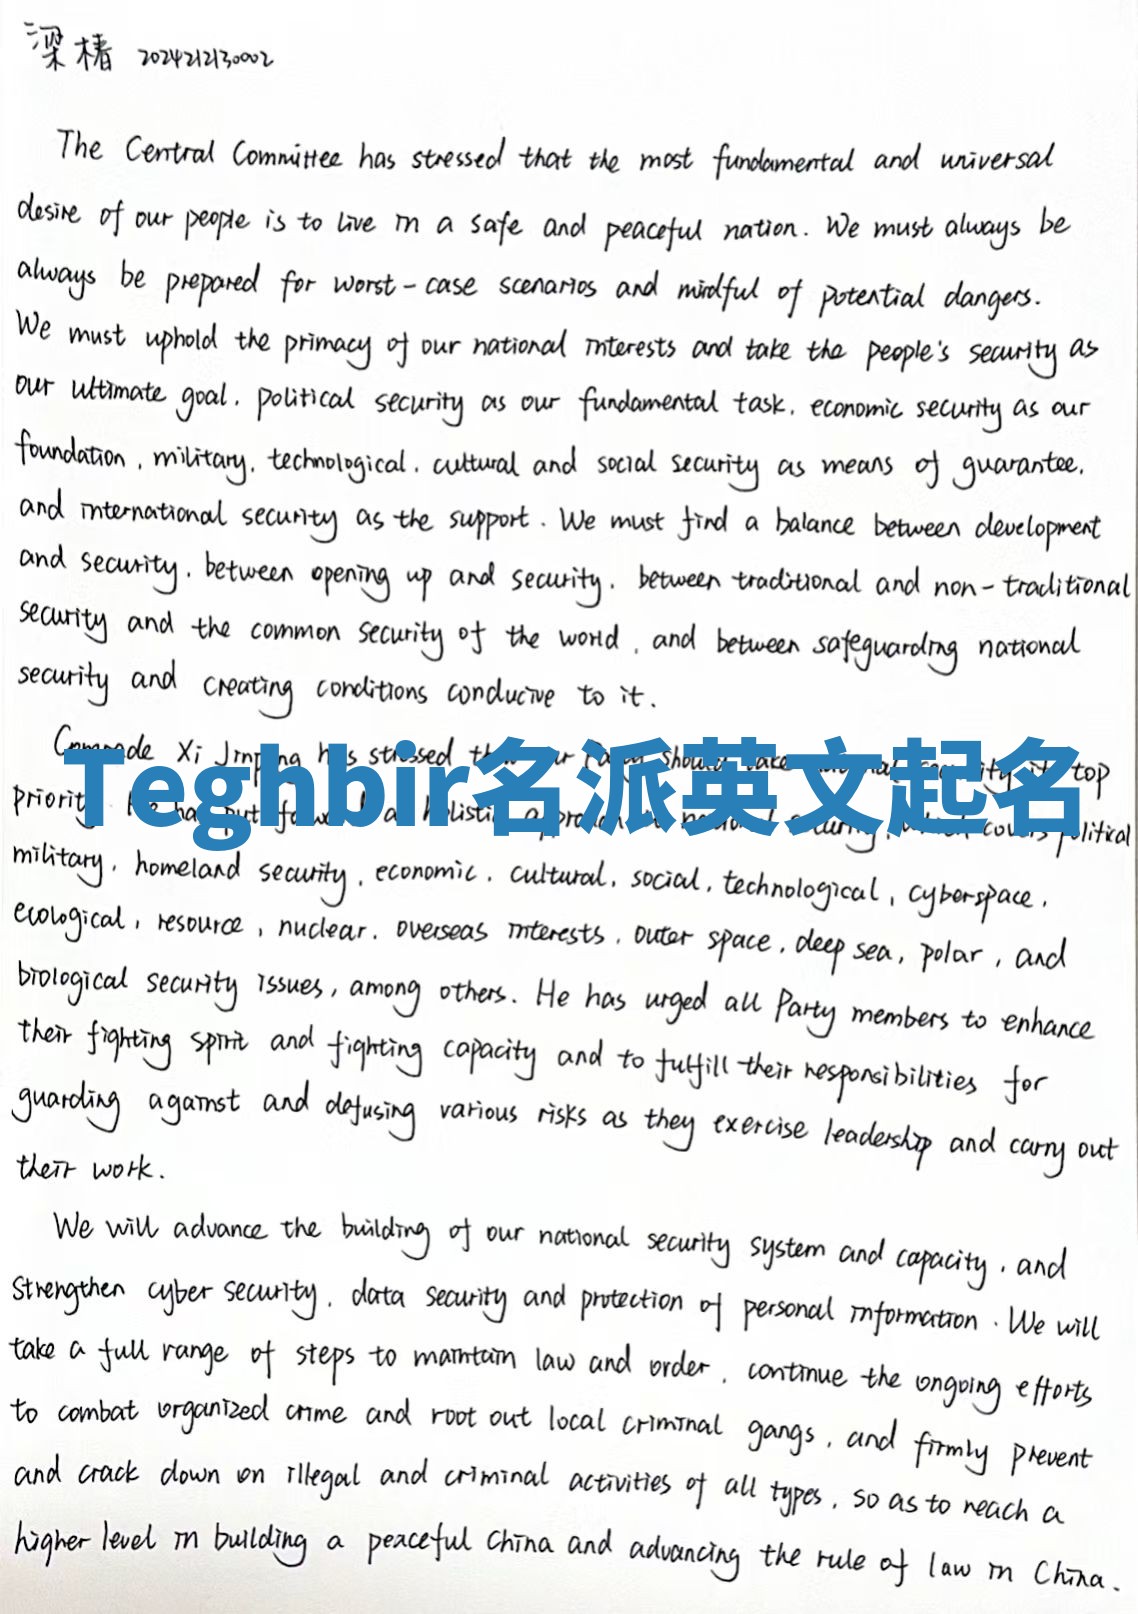 梁椿 2024212130002
The Central Committee has stressed that the most fundamental and universal
desire of our people is to live in a safe and peaceful nation. We must always be
always be prepared for worst-case scenarios and mindful of potential dangers.
We must uphold the primacy of our national interests and take the people's security as
our ultimate goal, political security as our fundamental task, economic security as our
foundation, military, technological, cultural and social security as means of guarantee,
and international security as the support. We must find a balance between development
and security, between opening up and security, between traditional and non-traditional
security and the common security of the world, and between safeguarding national
security and creating conditions conducive to it.
Comrade Xi Jinping has stressed our Party should take top
Teghbir名派英文起名
priority. He has put a holistic covers political
military, homeland security, economic, cultural, social, technological, cyberspace,
ecological, resource, nuclear, overseas interests, outer space, deep sea, polar, and
biological security issues, among others. He has urged all Party members to enhance
their fighting spirit and fighting capacity and to fulfill their responsibilities for
guarding against and defusing various risks as they exercise leadership and carry out
their work.
We will advance the building of our national security system and capacity, and
strengthen cyber security, data security and protection of personal information. We will
take a full range of steps to maintain law and order, continue the ongoing efforts
to combat organized crime and root out local criminal gangs, and firmly prevent
and crack down on illegal and criminal activities of all types, so as to reach a
higher level in building a peaceful China and advancing the rule of law in China.